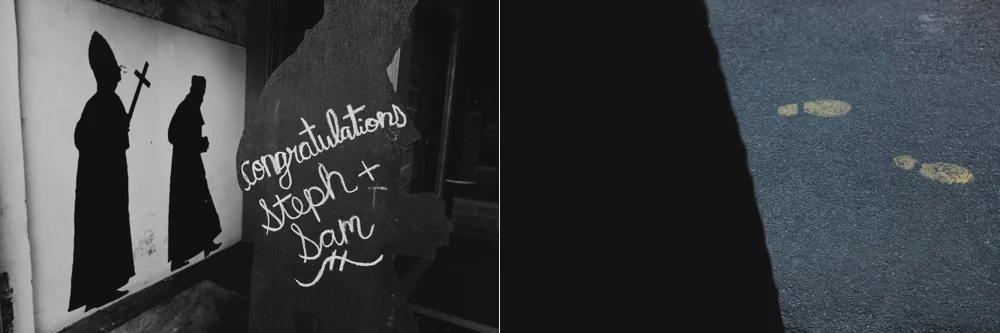 congratulations
Steph +
Sam